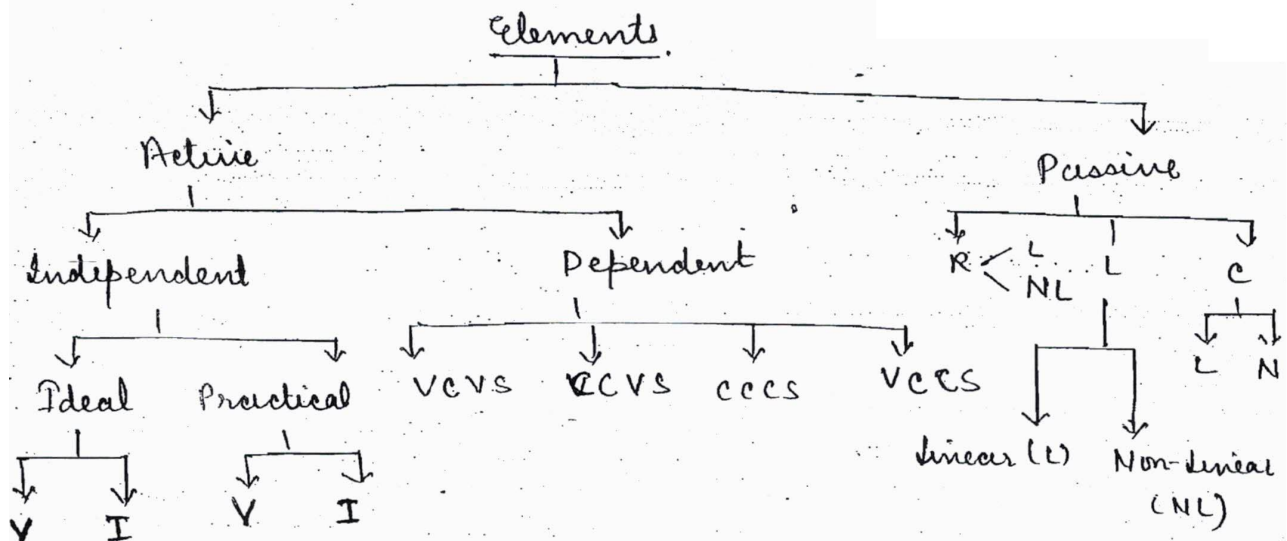 Elements.
Active Passive
Independent Dependent R L NL L C
Ideal Practical VCVS CCVS CCCS VCCS L N
V I V I Linear (L) Non-Linear
(NL)